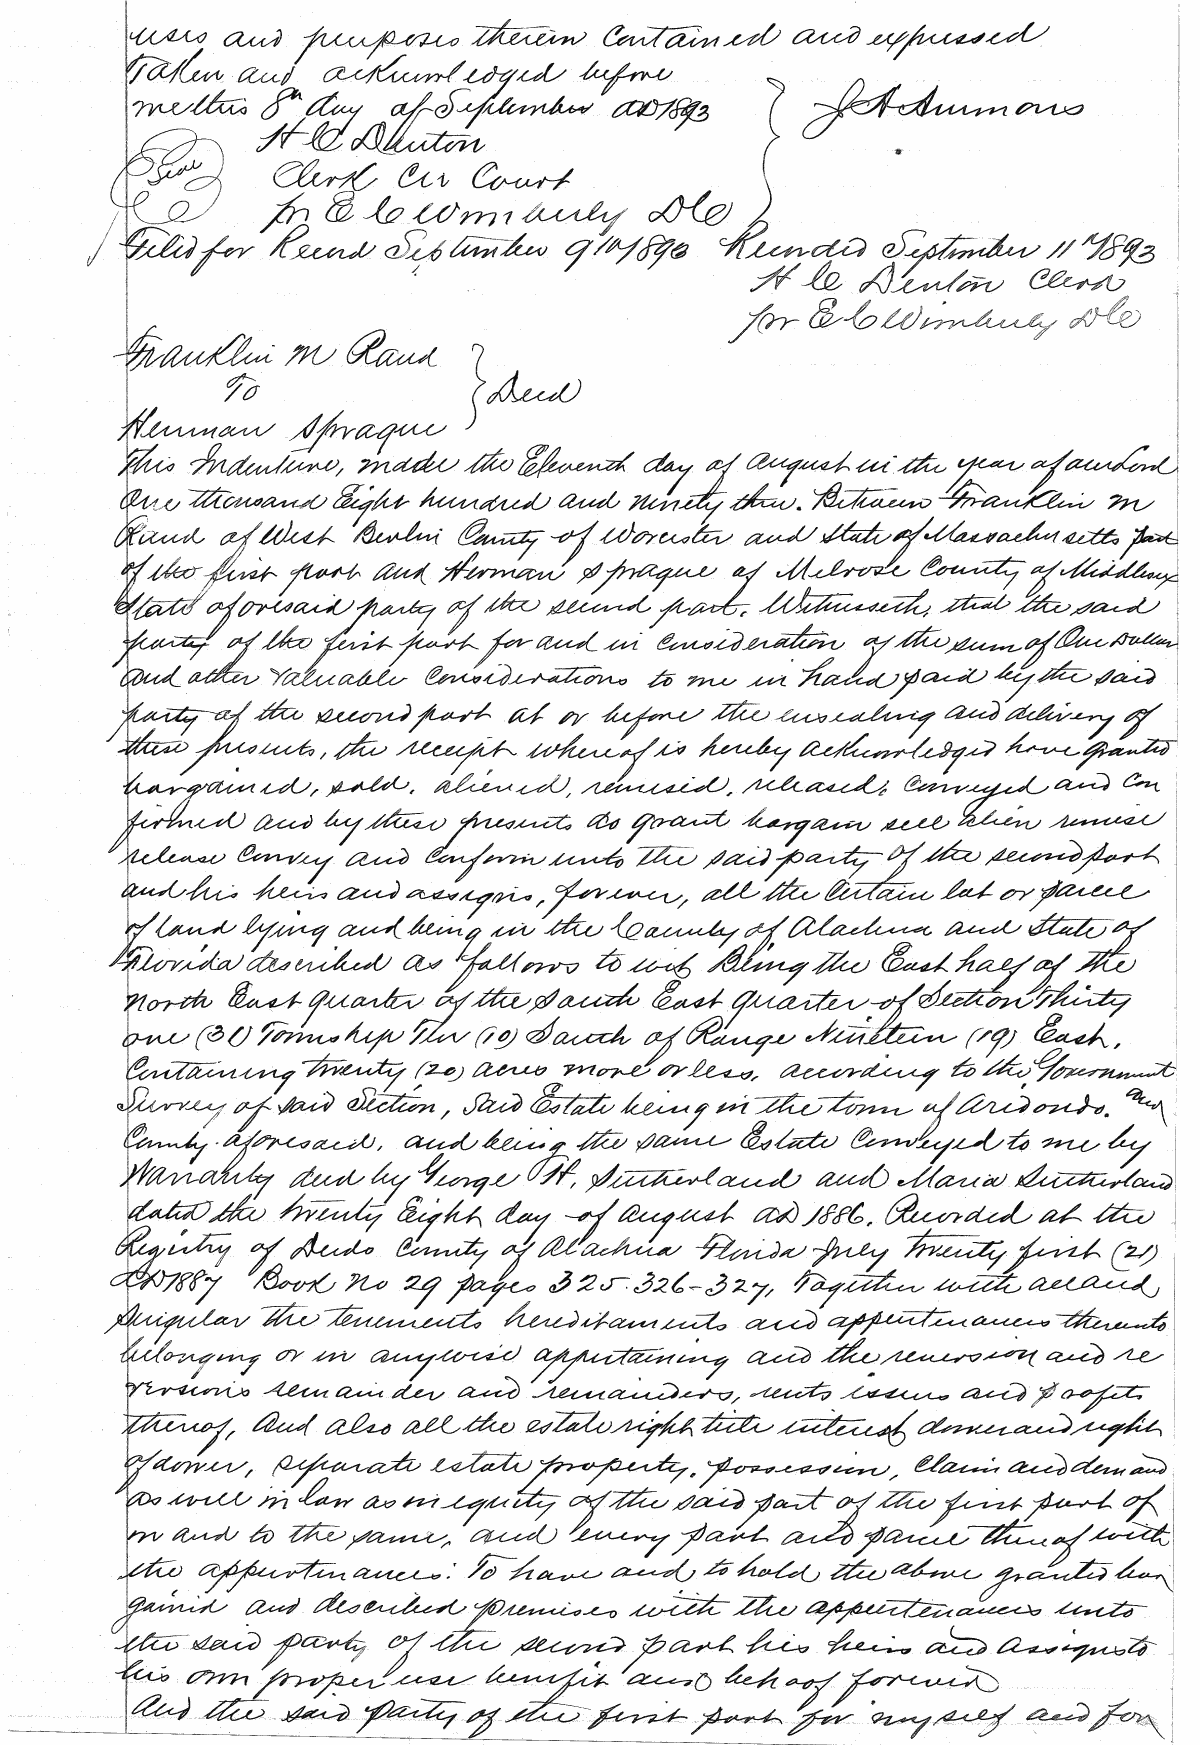 uses and purposes therein contained and expressed
Taken and acknowledged before
me this 8th day of September AD 1893 } J A Ammons
H C Denton
Seal Clerk Cir Court
pr E C Wimberly DC
Filed for Record September 9th 1893 Recorded September 11th 1893
H C Denton Clerk
pr E C Wimberly DC
Franklin M Rand
To } Deed
Herman Sprague
This Indenture, made the Eleventh day of August in the year of our Lord
One thousand Eight hundred and ninety three. Between Franklin M
Rand of West Berlin County of Worcester and State of Massachusetts part
of the first part and Herman Sprague of Melrose County of Middlesex
State aforesaid party of the second part. Witnesseth, that the said
party of the first part for and in consideration of the sum of One Dollar
and other valuable considerations to me in hand paid by the said
party of the second part at or before the ensealing and delivery of
these presents, the receipt whereof is hereby acknowledged have granted
bargained, sold, aliened, remised, released, conveyed and con
firmed and by these presents do grant bargain sell alien remise
release convey and confirm unto the said party of the second part
and his heirs and assigns, forever, all the certain lot or parcel
of land lying and being in the County of Alachua and State of
Florida described as follows to wit Being the East half of the
North East quarter of the South East quarter of Section Thirty
one (31) Township Ten (10) South of Range Nineteen (19) East.
Containing twenty (20) acres more or less, according to the Government
Survey of said Section, Said Estate being in the town of Aredondo. and
County aforesaid, and being the same Estate conveyed to me by
Warranty deed by George H. Sutherland and Maria Sutherland
dated the twenty Eight day of August AD 1886. Recorded at the
Registry of Deeds County of Alachua Florida July twenty first (21)
AD 1887 Book No 29 pages 325-326-327, Together with all and
singular the tenements hereditaments and appurtenances thereunto
belonging or in anywise appertaining and the reversion and re
versions remainder and remainders, rents issues and profits
thereof, And also all the estate right title interest dower and right
of dower, separate estate property, possession, claim and demand
as well in law as in equity of the said part of the first part of
in and to the same, and every part and parcel thereof with
the appurtenances: To have and to hold the above granted bar
gained and described premises with the appurtenances unto
the said party of the second part his heirs and assigns to
his own proper use benefit and behoof forever
And the said party of the first part for myself and for